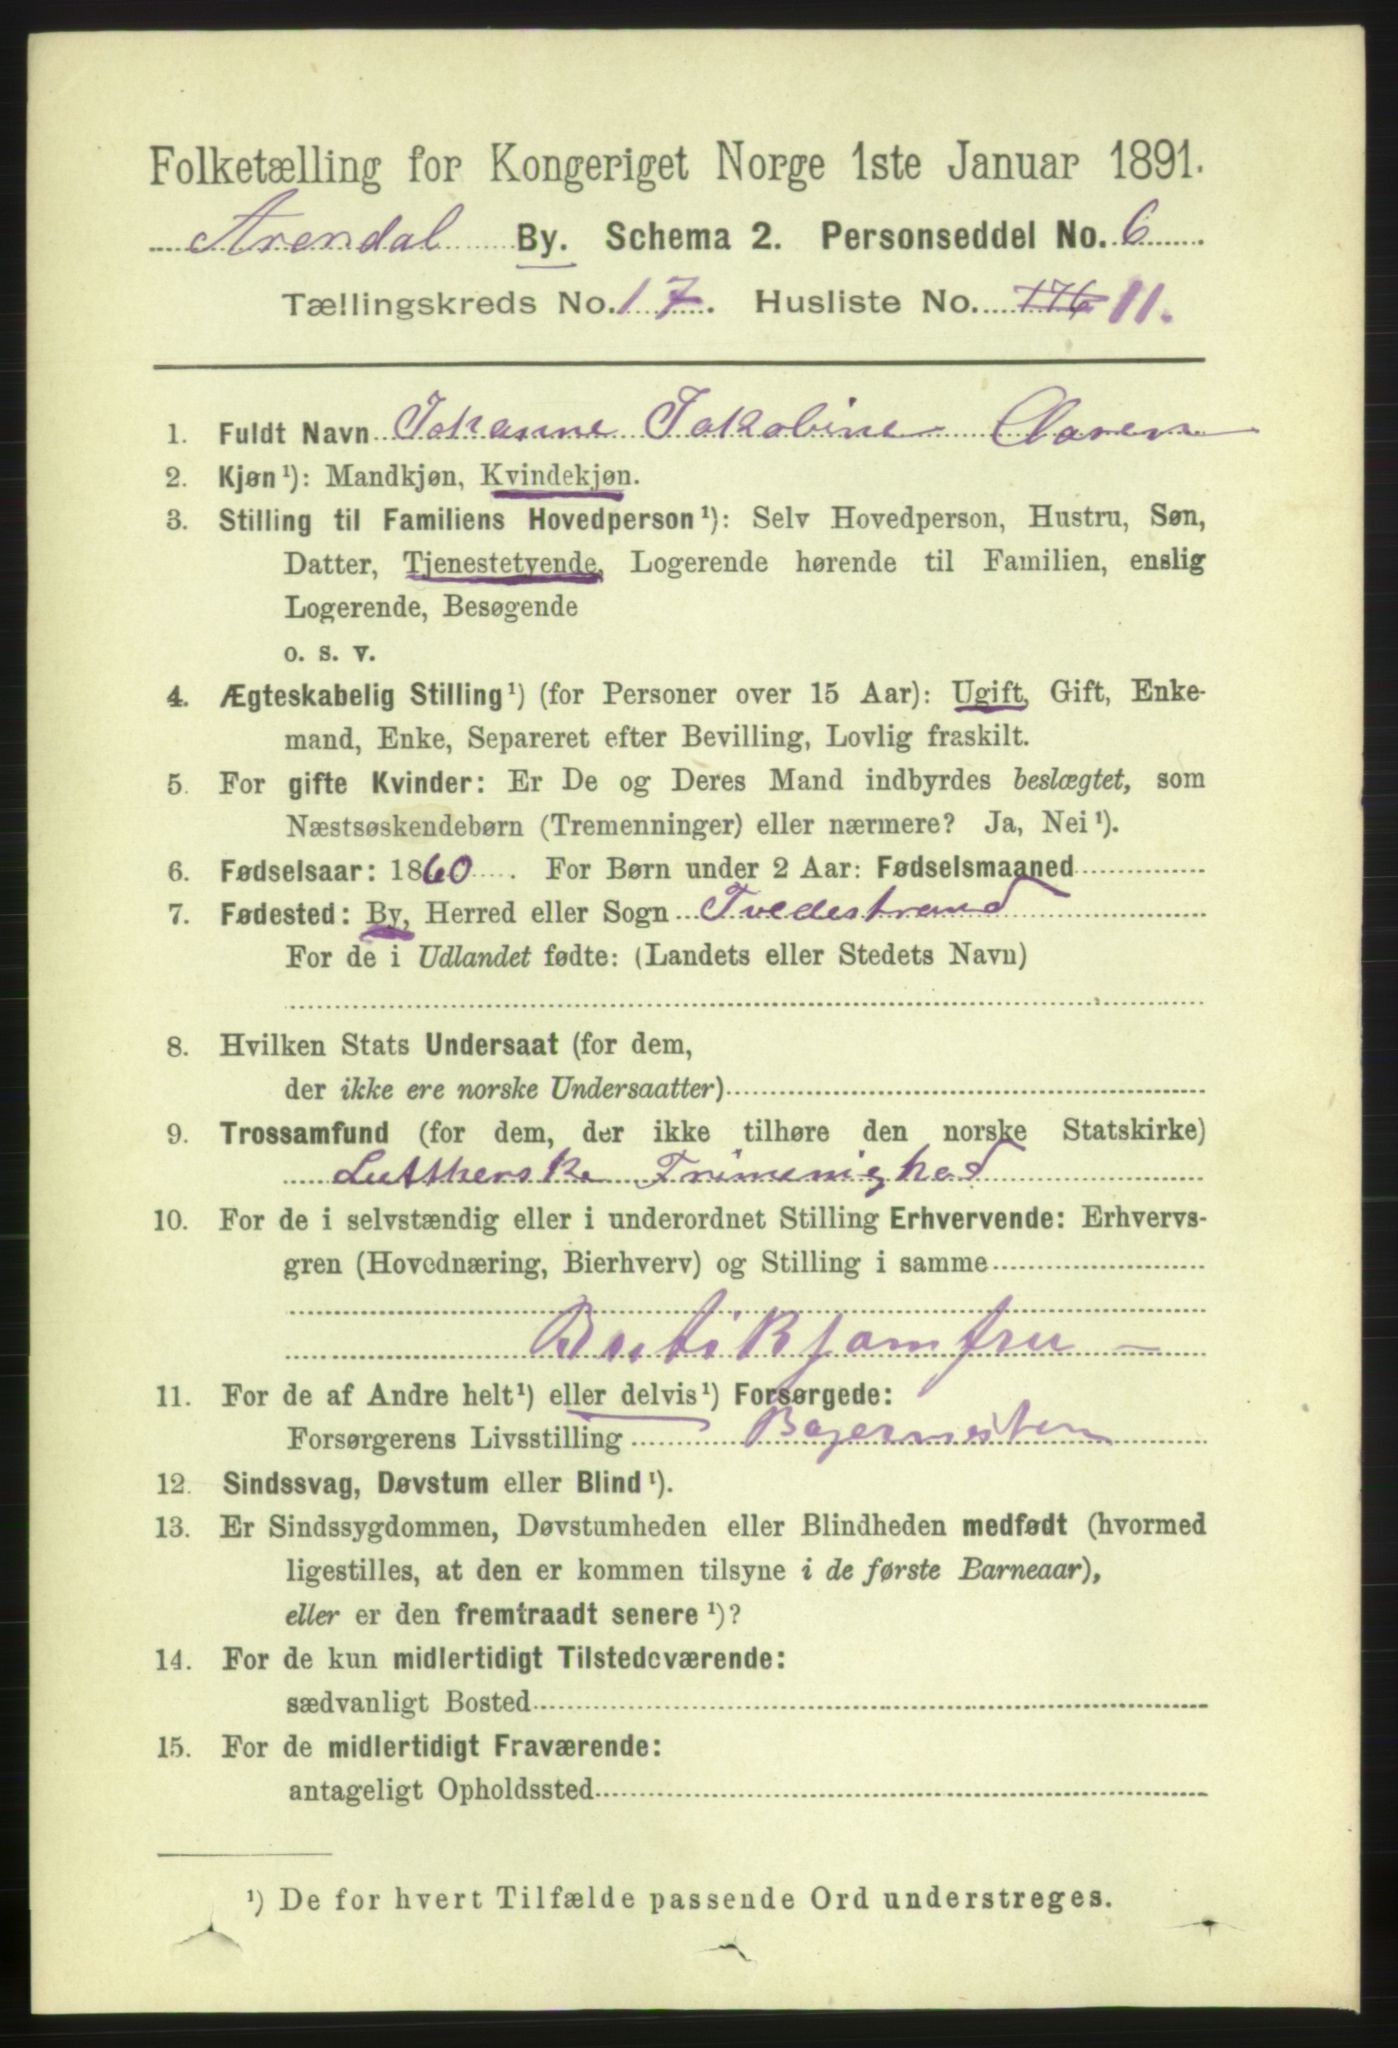 Folketælling for Kongeriget Norge 1ste Januar 1891.
Arendal By. Schema 2. Personseddel No. 6
Tællingskreds No. 17. Husliste No. 176 11.
1. Fuldt Navn Johanne Jakobine
2. Kjøn ¹): Mandkjøn, Kvindekjøn.
3. Stilling til Familiens Hovedperson ¹): Selv Hovedperson, Hustru, Søn,
Datter, Tjenestetyende, Logerende hørende til Familien, enslig
Logerende, Besøgende
o. s. v.
4. Ægteskabelig Stilling ¹) (for Personer over 15 Aar): Ugift, Gift, Enke-
mand, Enke, Separeret efter Bevilling, Lovlig fraskilt.
5. For gifte Kvinder: Er De og Deres Mand indbyrdes beslægtet, som
Næstsøskendebørn (Tremenninger) eller nærmere? Ja, Nei ¹).
6. Fødselsaar: 1860. For Børn under 2 Aar: Fødselsmaaned
7. Fødested: By, Herred eller Sogn Tvedestrand
For de i Udlandet fødte: (Landets eller Stedets Navn)
8. Hvilken Stats Undersaat (for dem,
der ikke ere norske Undersaatter)
9. Trossamfund (for dem, der ikke tilhøre den norske Statskirke)
Lutherske Frimenighed
10. For de i selvstændig eller i underordnet Stilling Erhvervende: Erhvervs-
gren (Hovednæring, Bierhverv) og Stilling i samme
Butikjomfru —
11. For de af Andre helt ¹) eller delvis ¹) Forsørgede:
Forsørgerens Livsstilling
12. Sindssvag, Døvstum eller Blind ¹).
13. Er Sindssygdommen, Døvstumheden eller Blindheden medfødt (hvormed
ligestilles, at den er kommen tilsyne i de første Barneaar),
eller er den fremtraadt senere ¹)?
14. For de kun midlertidigt Tilstedeværende:
sædvanligt Bosted
15. For de midlertidigt Fraværende:
antageligt Opholdssted
¹) De for hvert Tilfælde passende Ord understreges.